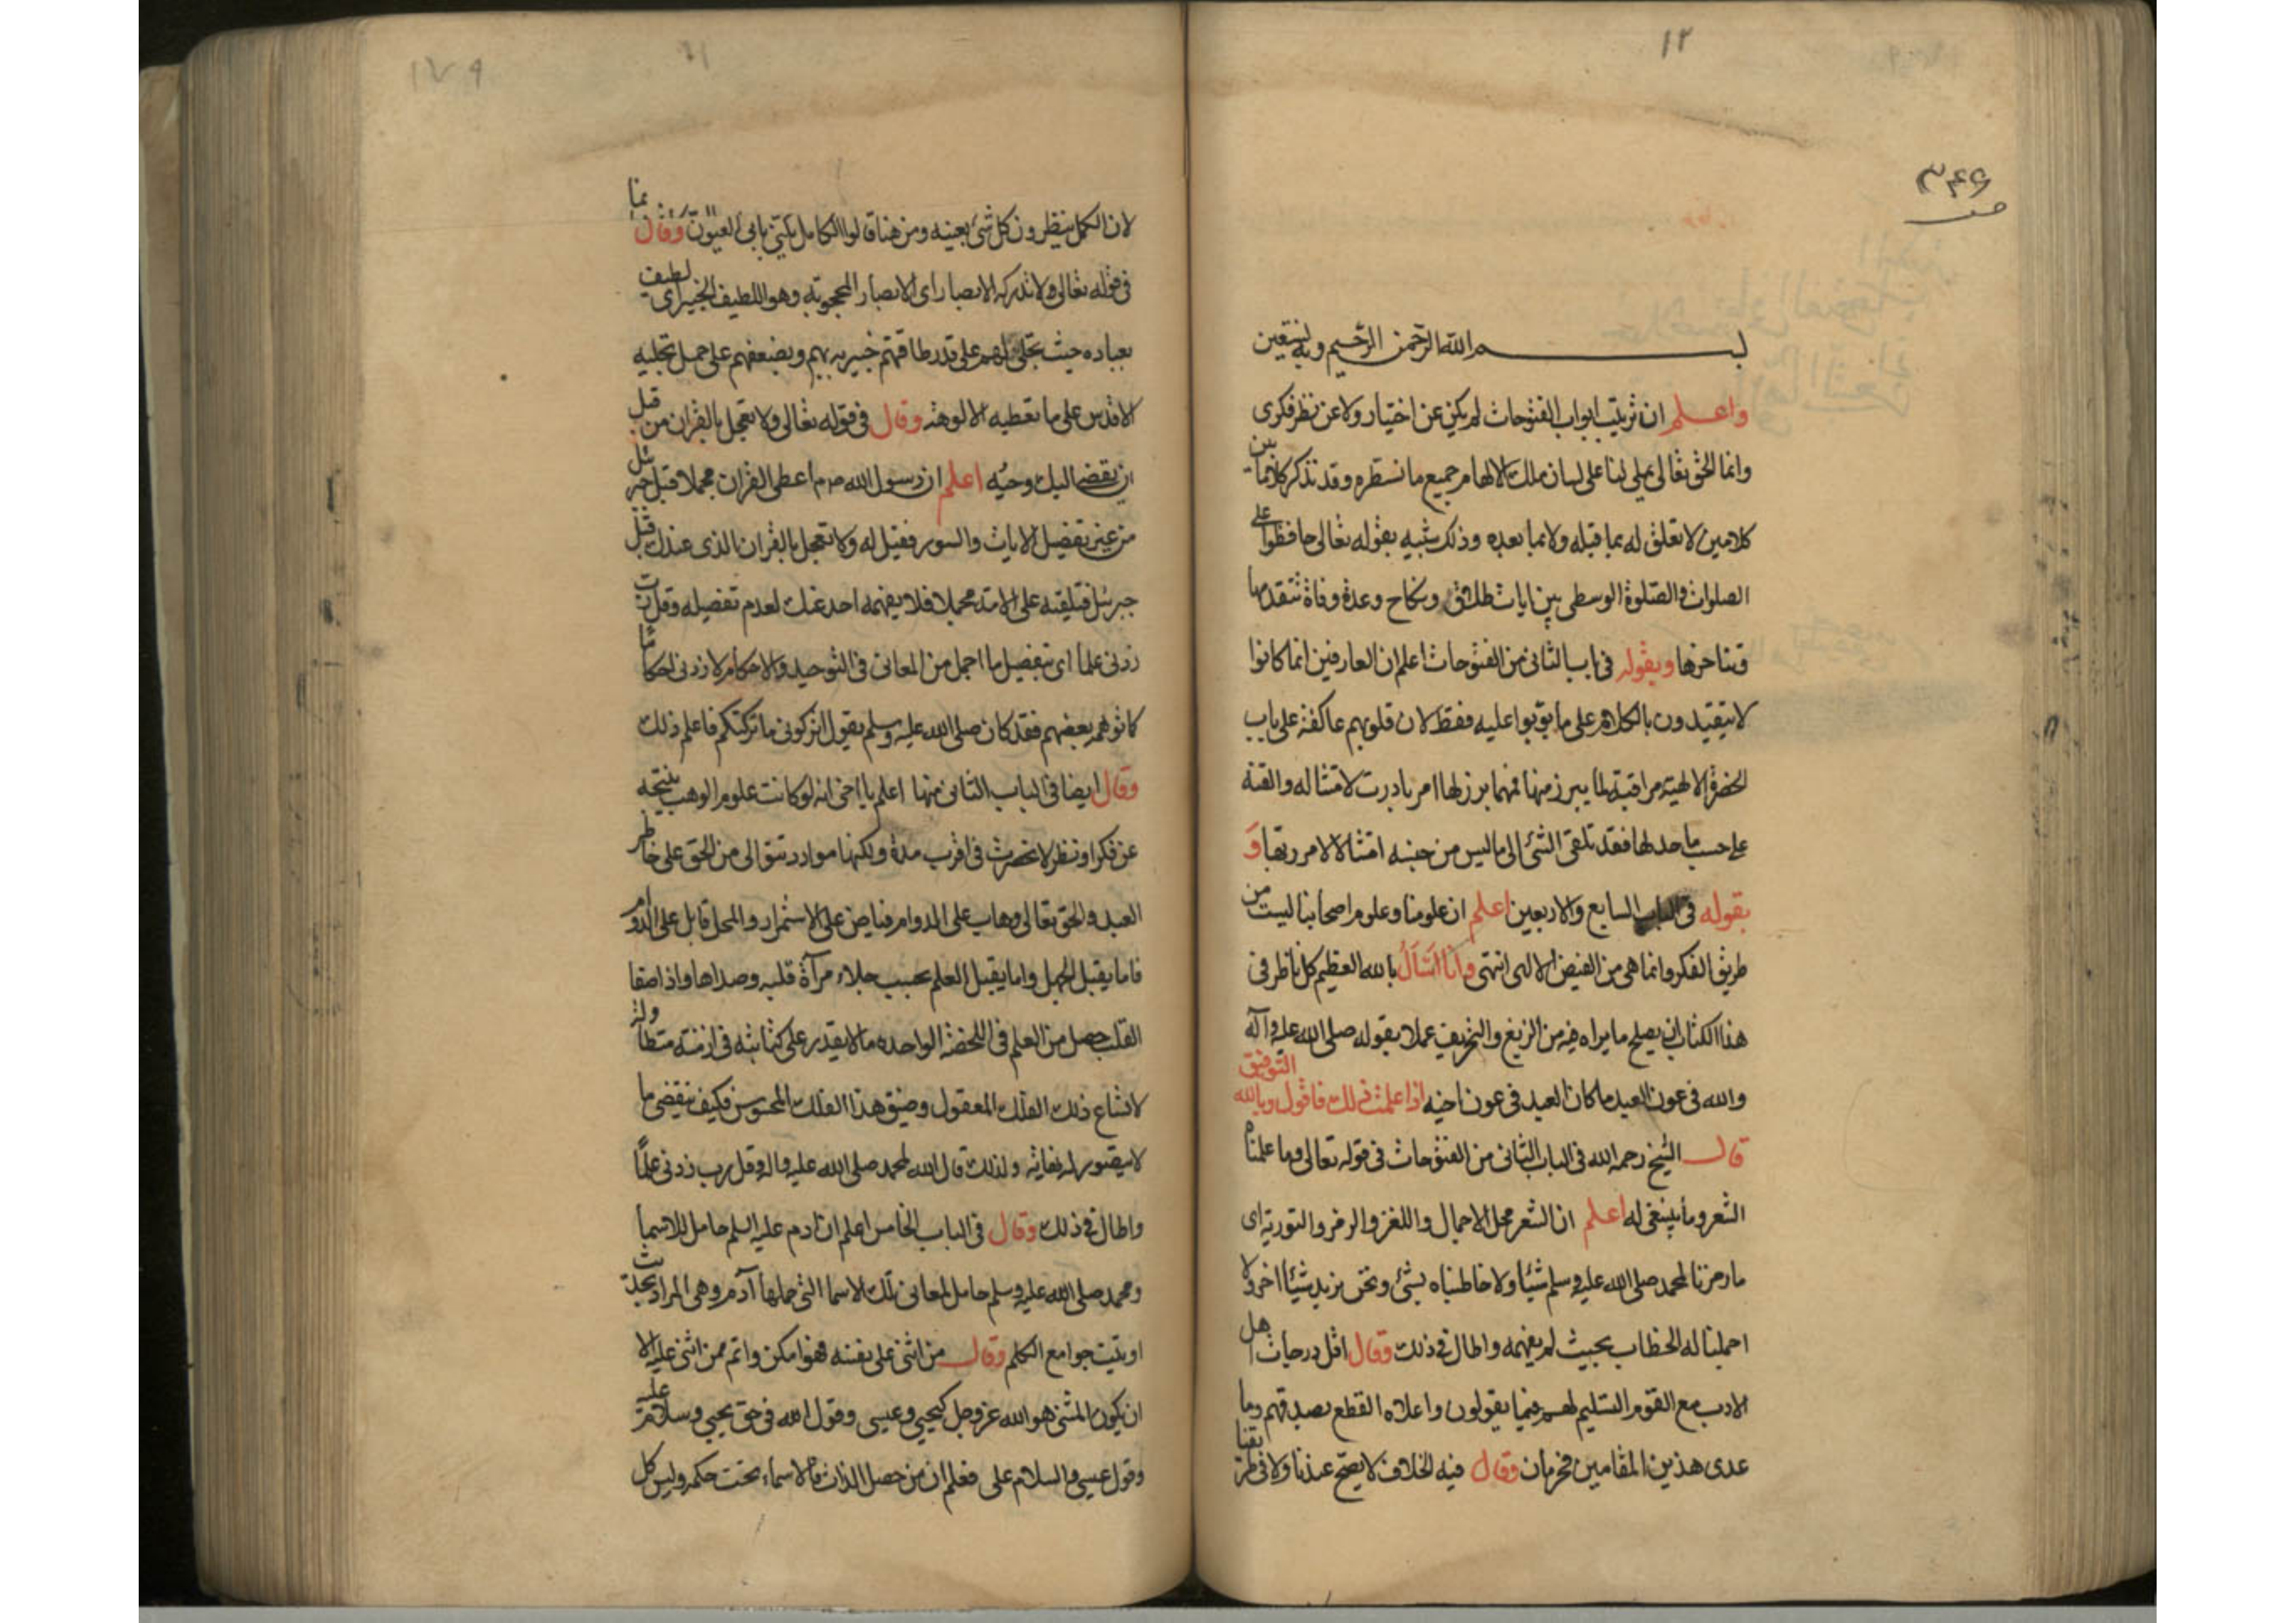 ١٢
٣٤٩
بسم الله الرحمن الرحيم وبه نستعين
واعلم ان ترتيب ابواب الفتوحات لم يكن عن اختيار ولا عن نظر فكرى
وانما الحق تعالى يملى لنا على لسان ملك الالهام جميع ما نسطره وقد نذكر كلاما بين
كلامين لا تعلق له بما قبله ولا بما بعده وذلك شبيه بقوله تعالى حافظوا على
الصلوات والصلوة الوسطى بين ايات طلاق ونكاح وعدة وفاة تتقدمها
وتتاخرها وبقوله فى باب الثانى من الفتوحات اعلم ان العارفين انما كانوا
لا يتقيدون بالكلام على ما بوبوا عليه فقط لان قلوبهم عاكفة على باب
الحضرة الالهية مراقبة لما يبرز منها فمهما برز لها امر بادرت لامتثاله والقته
على حسب ما حد لها فقد تلقى الشئ الى ما ليس من جنسه امتثالا لامر ربها و
بقوله فى الباب السابع والاربعين اعلم ان علومنا وعلوم اصحابنا ليست من
طريق الفكر وانما هى من الفيض الالهى انتهى وانا اسأل بالله العظيم كل ناظر فى
هذا الكتاب ان يصلح ما يراه فيه من الزيغ والتحريف عملا بقوله صلى الله عليه وآله
والله فى عون العبد ما كان العبد فى عون اخيه اذا علمت ذلك فاقول وبالله التوفيق
قال الشيخ رحمه الله فى الباب الثانى من الفتوحات فى قوله تعالى وما علمناه
الشعر وما ينبغى له اعلم ان الشعر محل الاجمال واللغز والرمز والتورية اى
ما رمزنا لمحمد صلى الله عليه وسلم شيئا ولا خاطبناه بشئ ونحن نريد شيئا اخر ولا
اجملنا له الخطاب بحيث لم يفهمه واطال فى ذلك وقال اقل درجات اهل
الادب مع القوم التسليم لهم فيما يقولون واعلاه القطع بصدقهم وما
عدى هذين المقامين فحرمان وقال فيه الخلاف لا يصح عندنا ولا فى طريقنا
١٧٩
لان الكمل ينظرون كل شئ بعينه ومن هنا قالوا الكامل يكنى بابى العيون وقال
فى قوله تعالى ولا تدركه الابصار اى الابصار المحجوبة وهو اللطيف الخبير اى لطيف
بعباده حيث تجلى لهم على قدر طاقتهم خبير بهم وبضعفهم على حمل تجليه
الاقدس على ما تعطيه الالوهة وقال فى قوله تعالى ولا تعجل بالقران من قبل
ان يقضى اليك وحيه اعلم ان رسول الله صم اعطى القران مجملا قبل جبرئل
من غير تفصيل الايات والسور فقيل له ولا تعجل بالقران الذى عندك قبل
جبرئل فتلقيه على الامة مجملا فلا يفهمه احد عنك لعدم تفصيله وقل رب
زدنى علما اى بتفصيل ما اجمل من المعانى فى التوحيد والاحكام لا زدنى احكاما
كما توهمه بعضهم فقد كان صلى الله عليه وسلم يقول اتركونى ما تركتكم فاعلم ذلك
وقال ايضا فى الباب الثانى منها اعلم يا اخى انه لو كانت علوم الوهب نتيجة
عن فكر او نظر لانحصرت فى اقرب مدة ولكنها موارد تتوالى من الحق على خاطر
العبد والحق تعالى وهاب على الدوام فياض على الاستمرار والمحل قابل على الدوام
فاما يقبل الجهل واما يقبل العلم بحسب جلاء مرآة قلبه وصداها واذا صفا
القلب حصل من العلم فى اللحظة الواحدة ما لا يقدر على كتابته فى ازمنة متطاولة
لاتساع ذلك الفلك المعقول وضيق هذا الفلك المحسوس فكيف ينقضى ما
لا يتصور له نهاية ولذلك قال الله لمحمد صلى الله عليه واله وقل رب زدنى علما
واطال فى ذلك وقال فى الباب الخامس اعلم ان ادم عليه السلم حامل للاسما
ومحمد صلى الله عليه وسلم حامل لمعانى تلك الاسما التى حملها آدم وهى المراد بحديث
اوتيت جوامع الكلم وقال من اثنى على نفسه فهو امكن واتم ممن اثنى عليه الا
ان يكون المثنى هو الله عز وجل كيحيى وعيسى وقول الله فى حق يحيى وسلام عليه
وقول عيسى والسلام على فعلم ان من حصل الذات فالاسماء تحت حكمه وليس كل